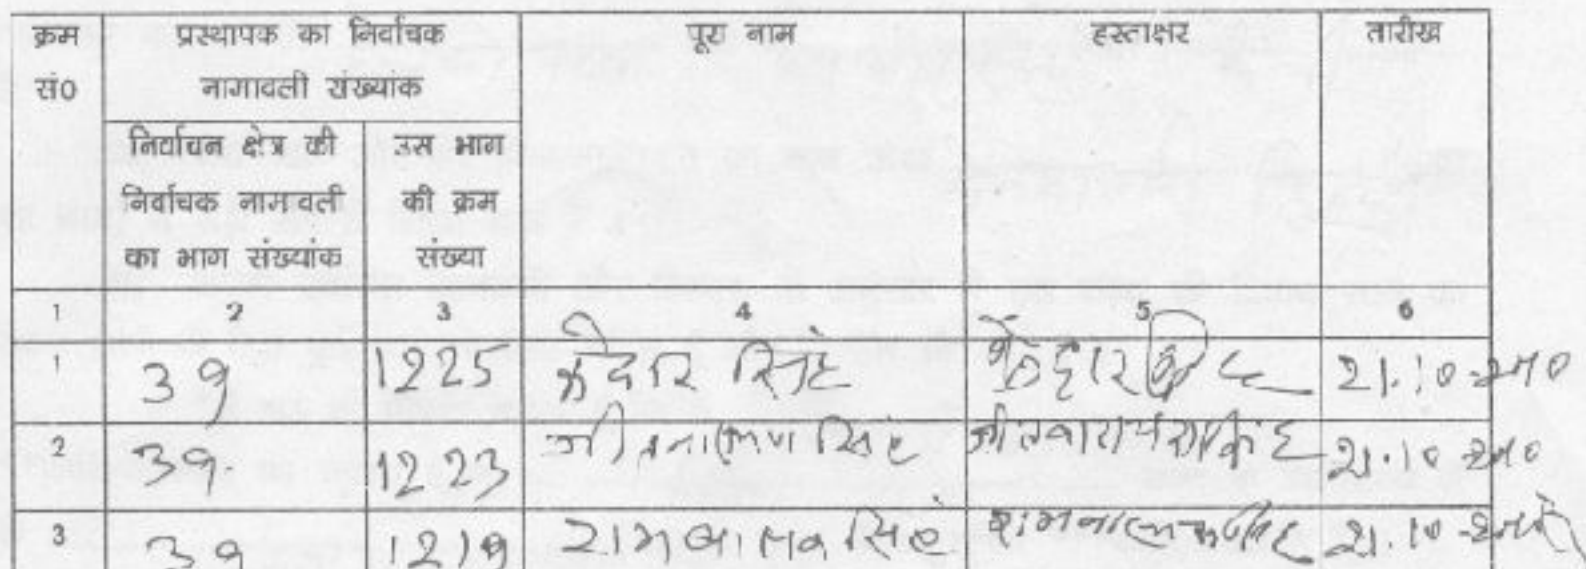 क्रम सं0 प्रस्थापक का निर्वाचक नामावली संख्यांक पूरा नाम हस्ताक्षर तारीख
निर्वाचन क्षेत्र की निर्वाचक नामावली का भाग संख्यांक उस भाग की क्रम संख्या
1 2 3 4 5 6
1 39 1225 केदार सिंह केदार 21.10
2 39 1223 सिंह 21.10
3 39 1219 रामबालक सिंह 21.10